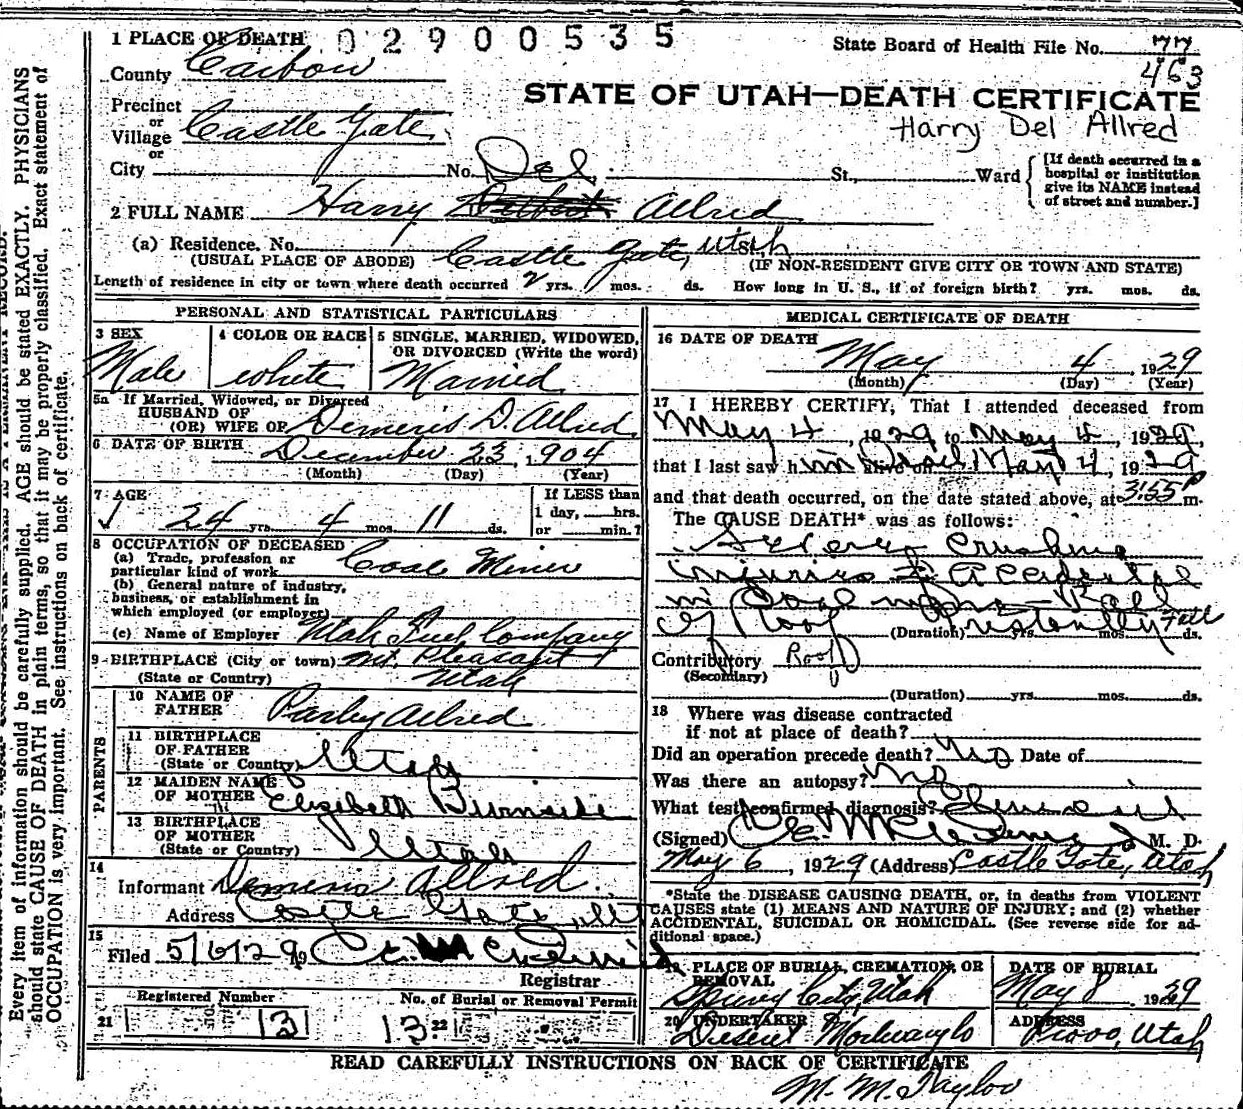 1 PLACE OF DEATH 02900535
State Board of Health File No. 77
463
County Carbon
STATE OF UTAH—DEATH CERTIFICATE
Harry Del Allred
Precinct
or
Village Castle Gate
or
City No. St., Ward
[If death occurred in a
hospital or institution
give its NAME instead
of street and number.]
Del
2 FULL NAME Harry Allred
(a) Residence. No. Castle Gate, Utah St.,
(USUAL PLACE OF ABODE) (IF NON-RESIDENT GIVE CITY OR TOWN AND STATE)
Length of residence in city or town where death occurred 2 yrs. mos. ds. How long in U. S., if of foreign birth? yrs. mos. ds.
PERSONAL AND STATISTICAL PARTICULARS
3 SEX
Male
4 COLOR OR RACE
white
5 SINGLE, MARRIED, WIDOWED,
OR DIVORCED (Write the word)
Married
5a If Married, Widowed, or Divorced
HUSBAND OF
(OR) WIFE OF Demeris D. Allred
6 DATE OF BIRTH December 23, 1904
(Month) (Day) (Year)
7 AGE
24 yrs. 4 mos. 11 ds.
If LESS than
1 day, hrs.
or min.?
8 OCCUPATION OF DECEASED
(a) Trade, profession or
particular kind of work Coal Miner
(b) General nature of industry,
business, or establishment in
which employed (or employer)
(c) Name of Employer Utah Fuel Company
9 BIRTHPLACE (City or town) Mt. Pleasant
(State or Country) Utah
PARENTS
10 NAME OF
FATHER Parley Allred
11 BIRTHPLACE
OF FATHER
(State or Country) Utah
12 MAIDEN NAME
OF MOTHER Elizabeth Burnside
13 BIRTHPLACE
OF MOTHER
(State or Country) Utah
14
Informant Allred
Address Castle Gate, Ut
15
Filed 5/6/29 19
Registrar
Registered Number
21 13
No. of Burial or Removal Permit
13 22
MEDICAL CERTIFICATE OF DEATH
16 DATE OF DEATH
May 4 1929
(Month) (Day) (Year)
17 I HEREBY CERTIFY, That I attended deceased from
May 4, 1929 to May 4, 1929,
that I last saw him alive on May 4, 1929
and that death occurred, on the date stated above, at 3:55 P m.
The CAUSE DEATH* was as follows:
crushing
injuries accidental
in Coal mine
of Roof Instantly Fall
(Duration) yrs. mos. ds.
Contributory Roof
(Secondary)
(Duration) yrs. mos. ds.
18 Where was disease contracted
if not at place of death?
Did an operation precede death? No Date of
Was there an autopsy? No
What test confirmed diagnosis?
(Signed) M. D.
May 6, 1929 (Address) Castle Gate, Utah
*State the DISEASE CAUSING DEATH, or, in deaths from VIOLENT
CAUSES state (1) MEANS AND NATURE OF INJURY; and (2) whether
ACCIDENTAL, SUICIDAL OR HOMICIDAL. (See reverse side for ad-
ditional space.)
19 PLACE OF BURIAL, CREMATION, OR
REMOVAL
Spring City, Utah
DATE OF BURIAL
May 8, 1929
20 UNDERTAKER
Deseret Mortuary Co
ADDRESS
Provo, Utah
READ CAREFULLY INSTRUCTIONS ON BACK OF CERTIFICATE
M. M. Taylor
Every item of information should be carefully supplied. AGE should be stated EXACTLY. PHYSICIANS
should state CAUSE OF DEATH in plain terms, so that it may be properly classified. Exact statement of
OCCUPATION is very important. See instructions on back of certificate.